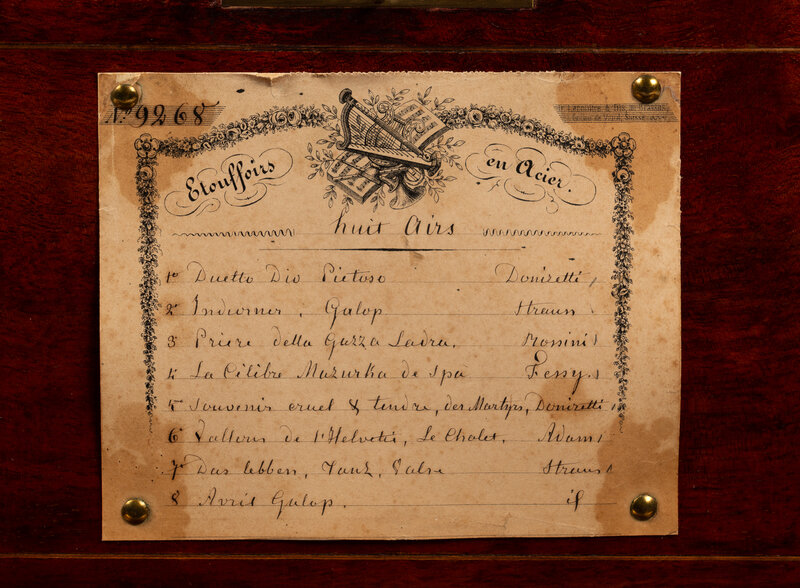 No 9268
Etouffoirs en Acier.
huit Airs
1o Duetto Dio Pietoso Donizetti
2o Indiorner, Galop Straus
3o Priere della Gazza Ladra. Rossini
4o La Célibre Mazurka de Spa Fessy.
5o Souvenir cruel & tendre, des Martyrs, Donizetti
6o Vallons de l'Helvetie, Le Chalet. Adam
7o Das lebben, Tanz, Valse Straus
8 Avril Galop. id